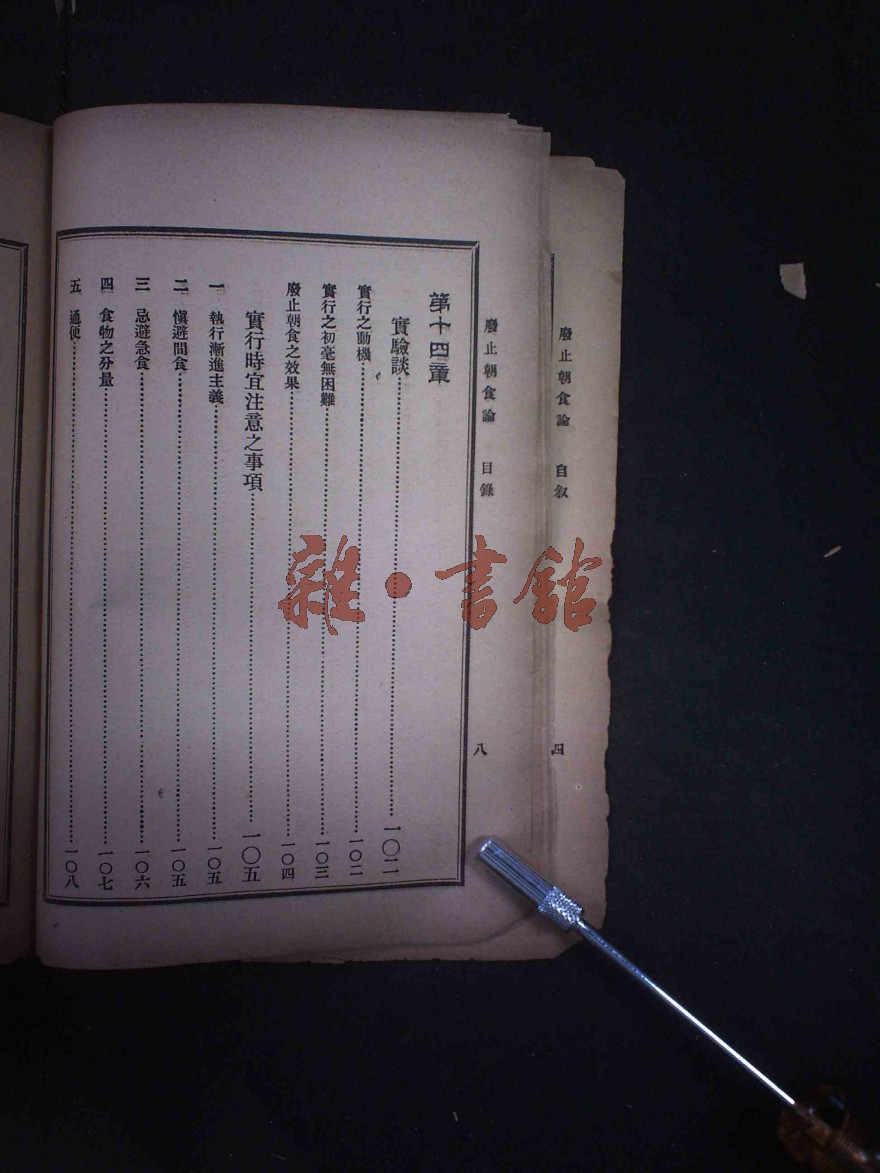 廢止朝食論 自叙 四
廢止朝食論 目錄 八
第十四章
實驗談……一〇二
實行之動機……一〇二
實行之初毫無困難……一〇三
廢止朝食之效果……一〇四
實行時宜注意之事項……一〇五
一 執行漸進主義……一〇五
二 愼避間食……一〇五
三 忌避急食……一〇六
四 食物之分量……一〇七
五 通便……一〇八
雜·書館